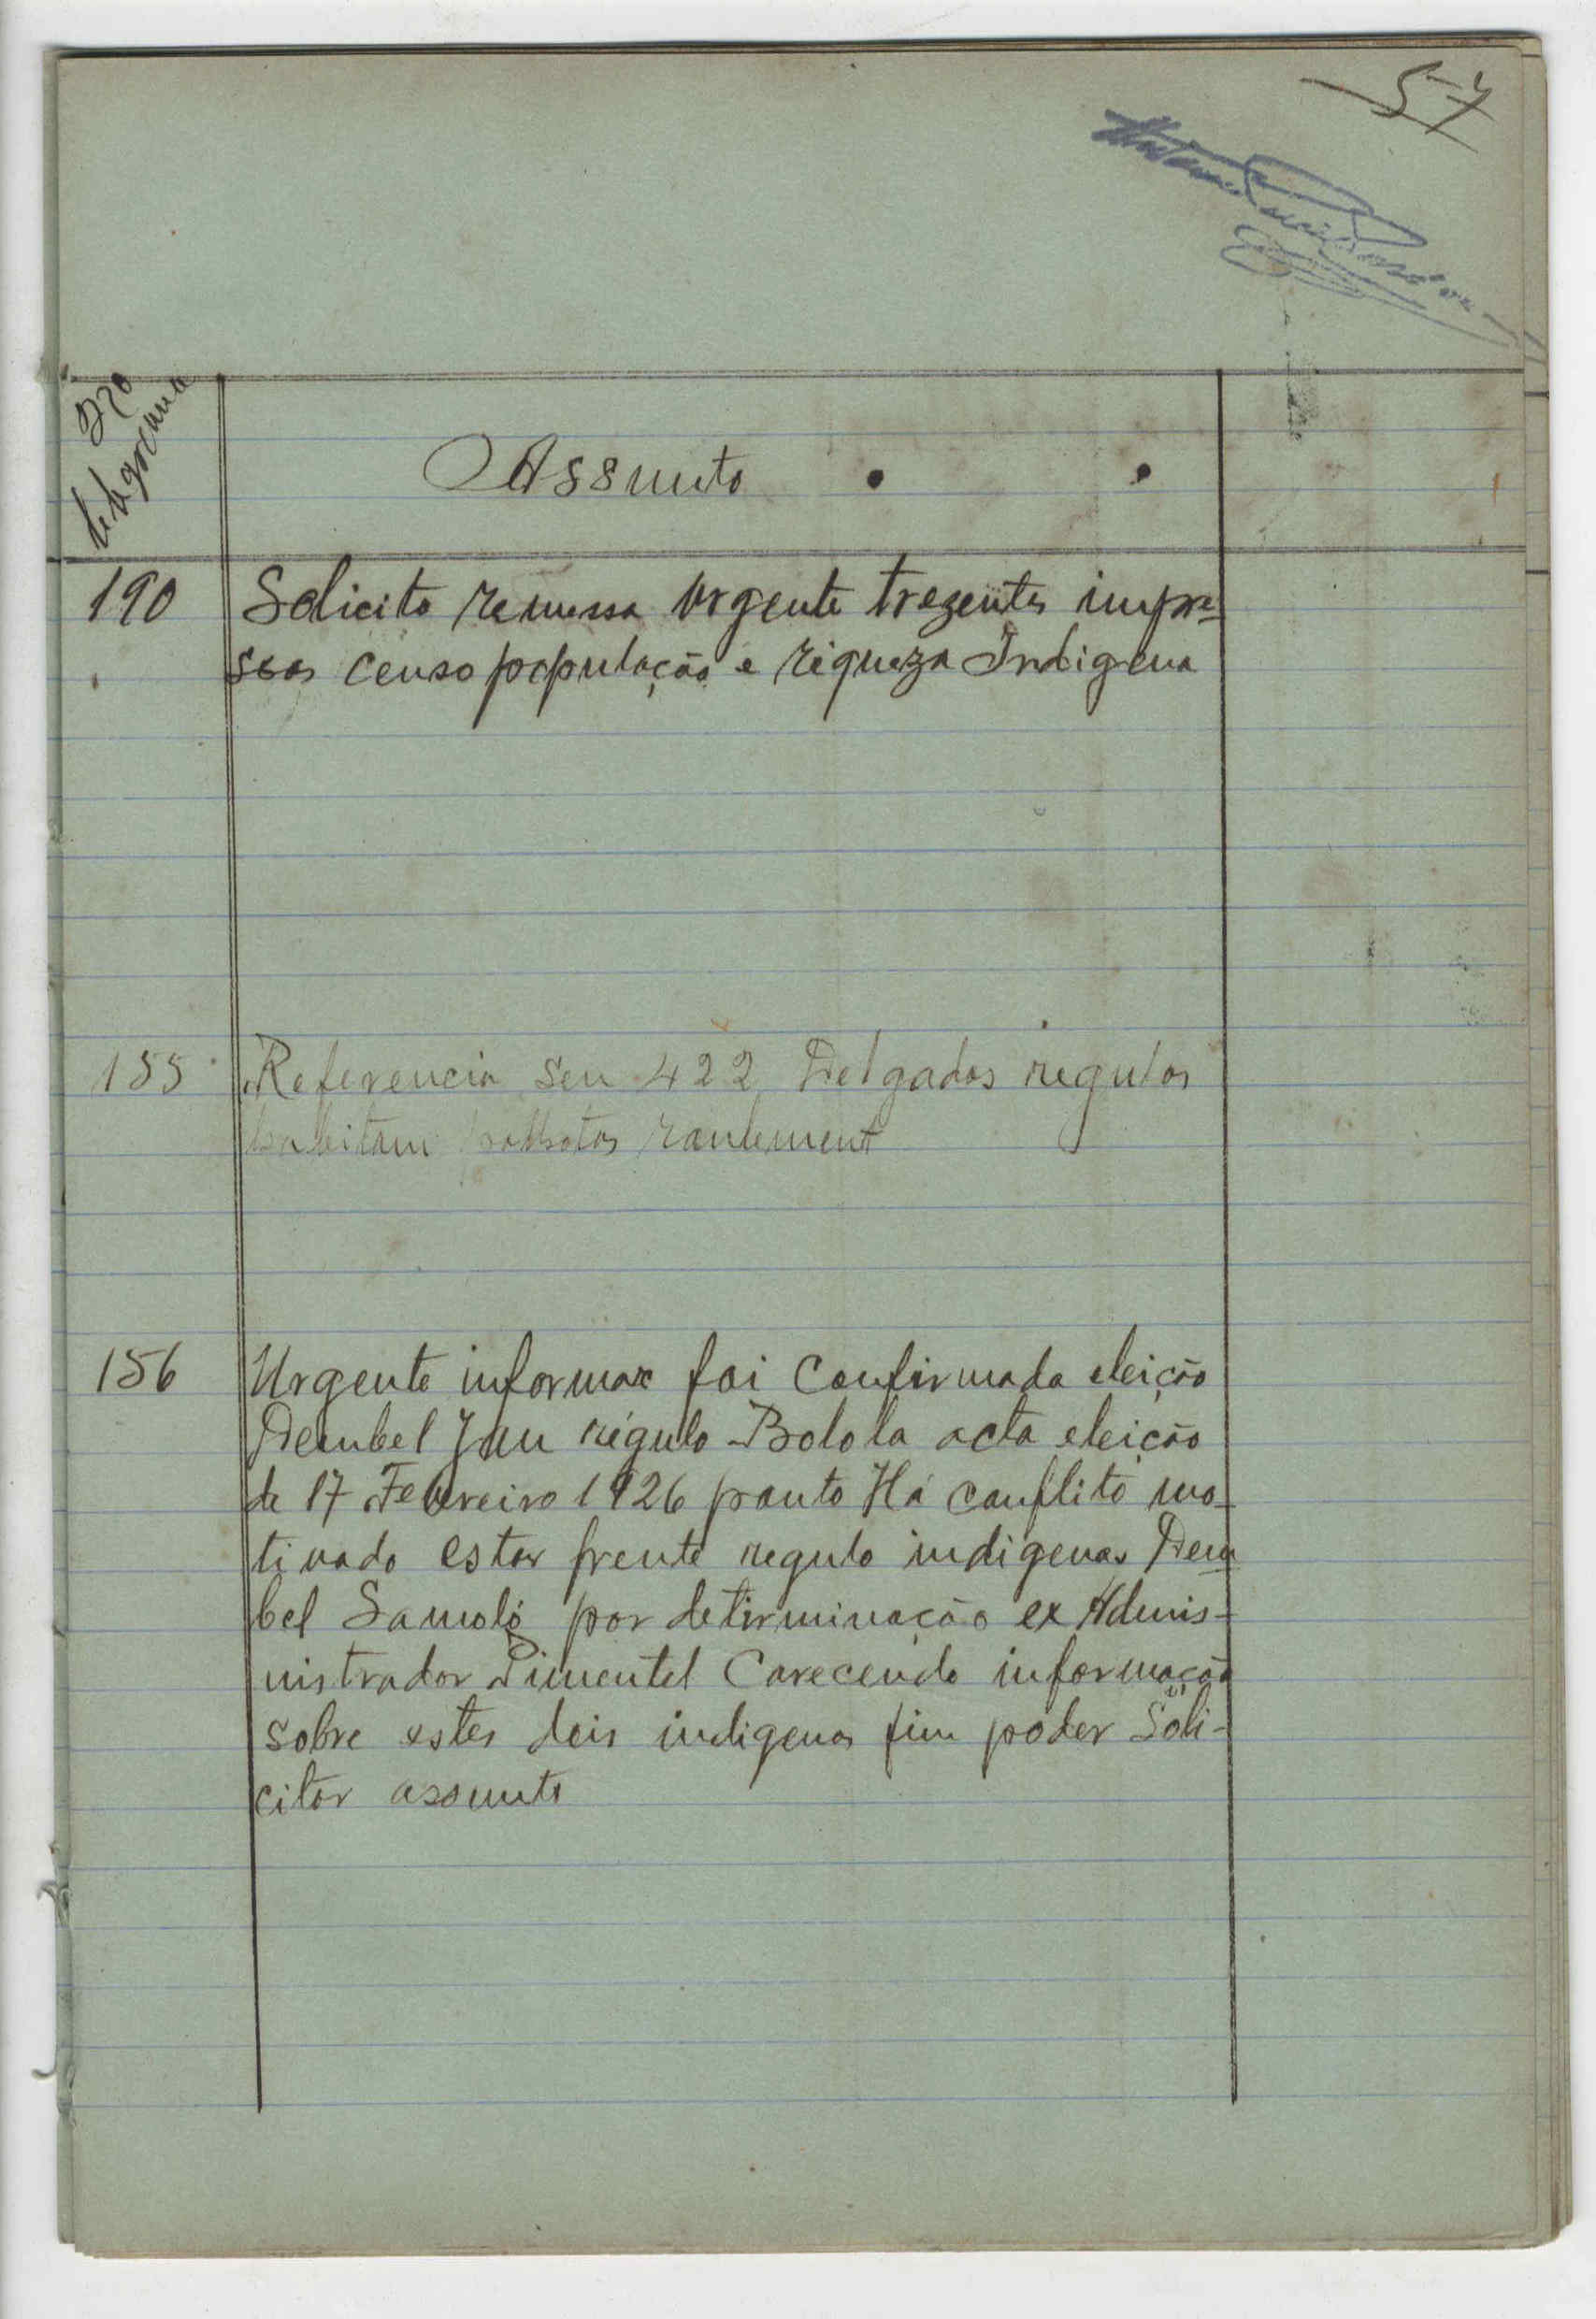 57
Nro
telegrama
Assunto
190
Solicito remessa urgente trezentos impre-
ssos censo população e riqueza Indigena
155
Referencia seu 422 Delgados regulos
habitam palhotas
156
Urgente informar foi Confirmada eleição
Dembel Jau régulo Bolola acta eleição
de 17 Fevereiro 1926 ponto Há conflito mo-
tivado estar frente regulo indigenas Dem-
bel Samoló por determinação ex Admis-
nistrador Pimentel Carecendo informação
sobre estes dois indigenas fim poder Soli-
citar assunto